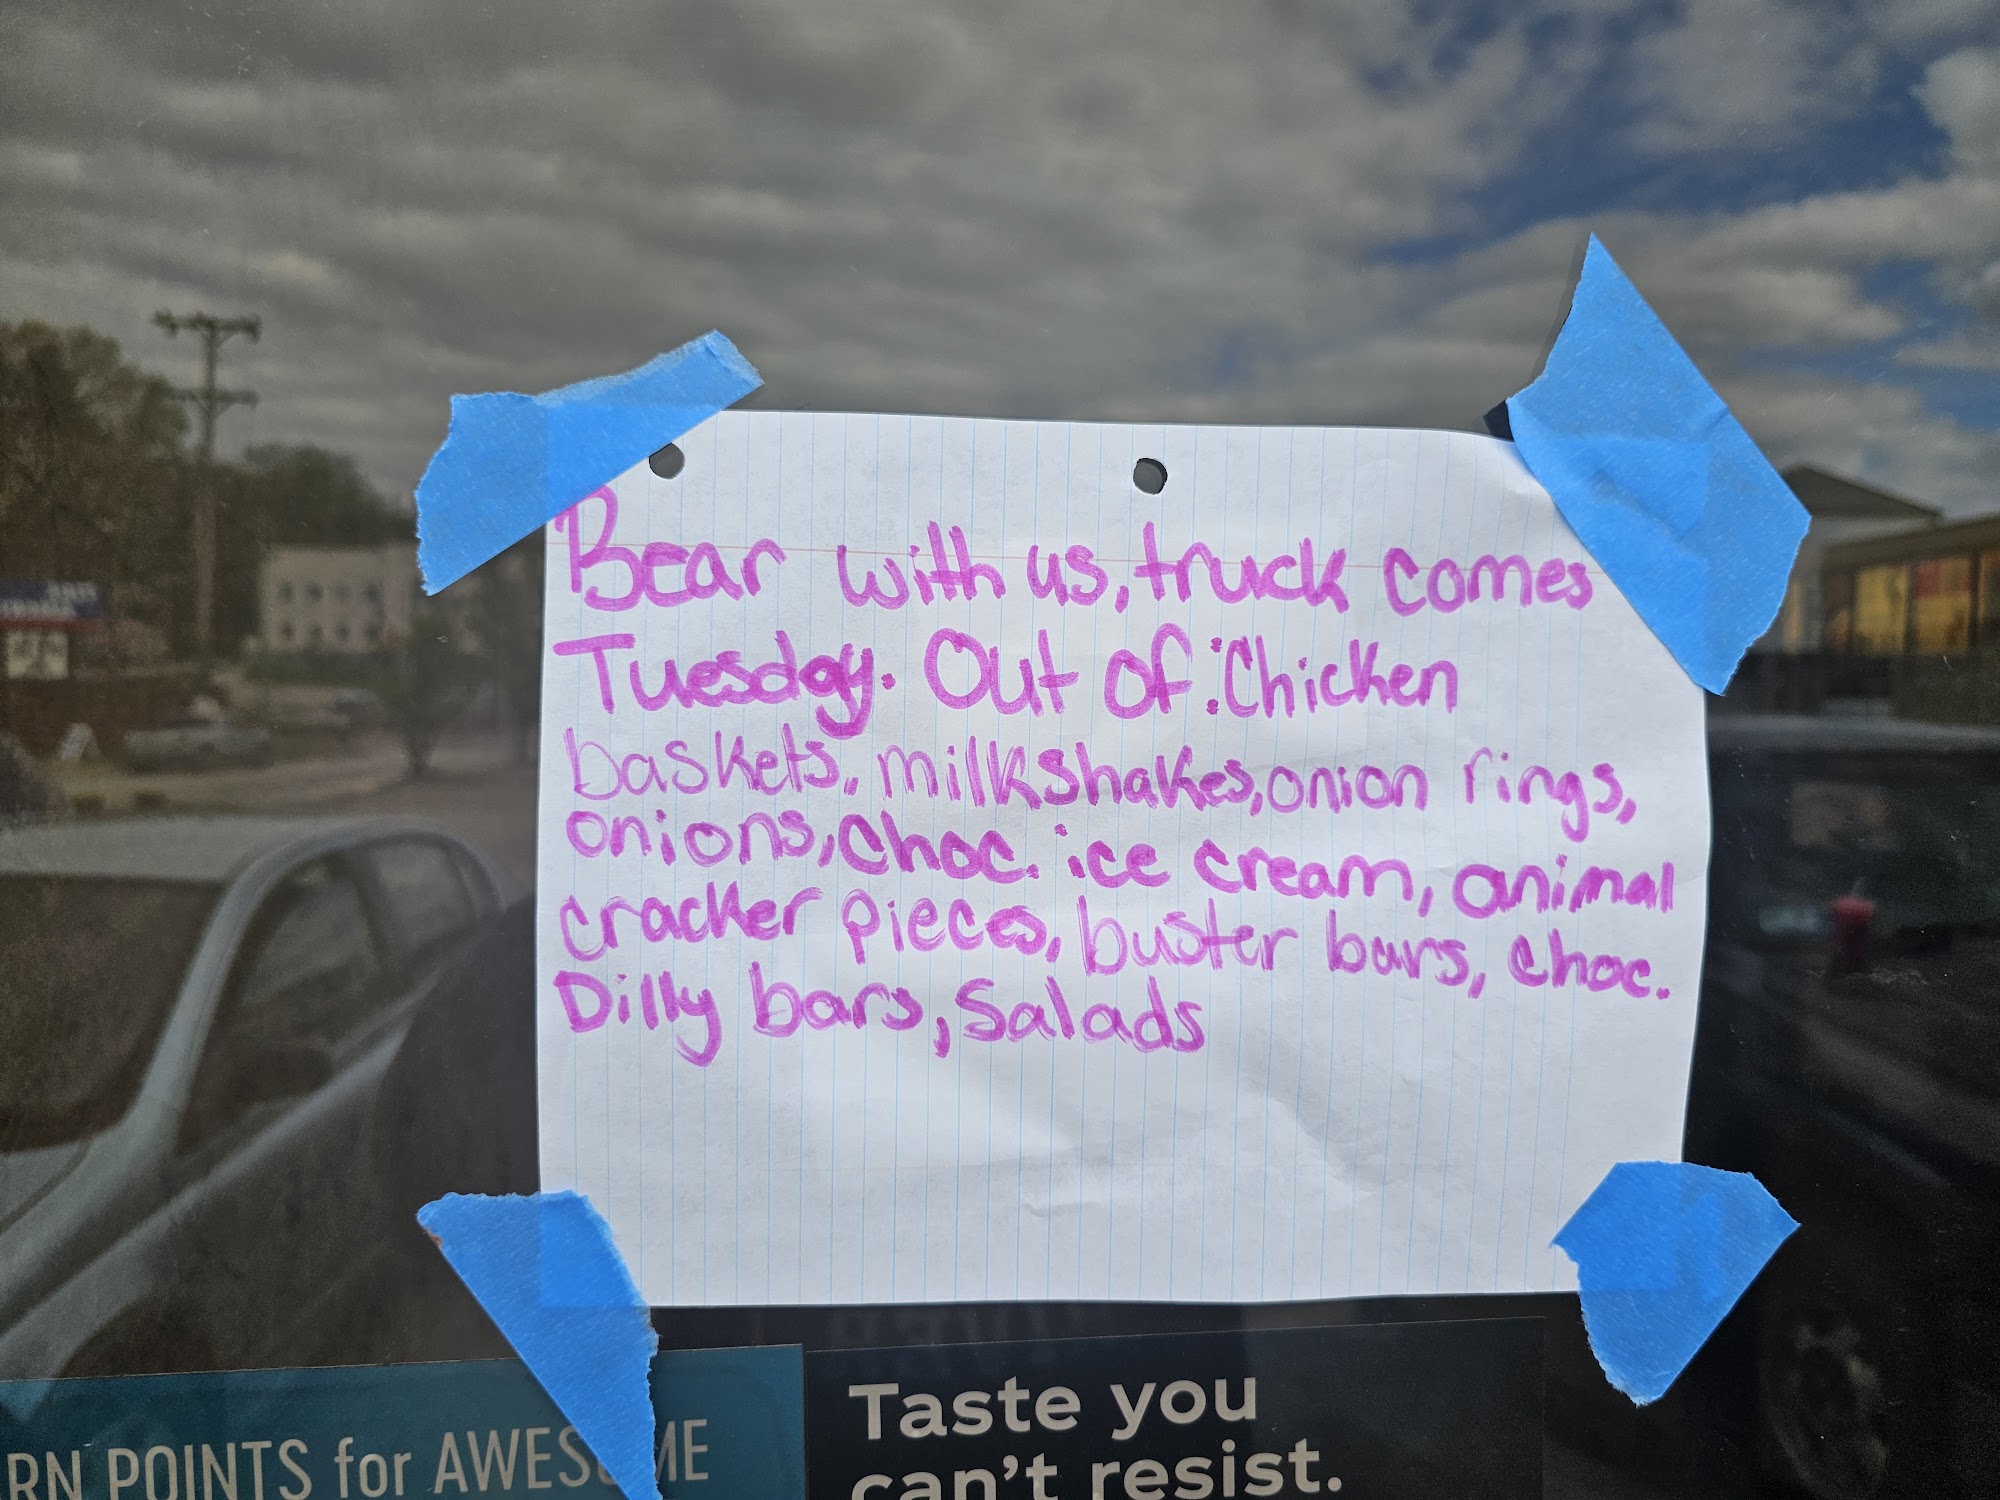 Bear with us, truck comes
Tuesday. Out of: Chicken
baskets, milkshakes, onion rings,
onions, choc. ice cream, animal
cracker pieces, buster bars, choc.
Dilly bars, Salads
RN POINTS for AWESOME
Taste you
can't resist.